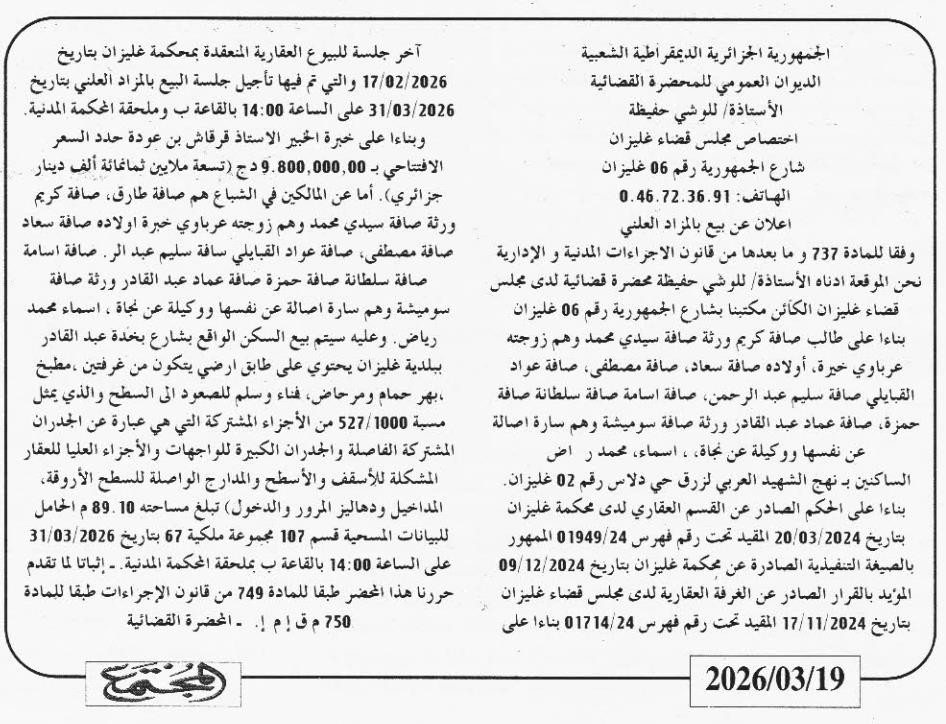 الجمهورية الجزائرية الديمقراطية الشعبية
الديوان العمومي للمحضرة القضائية
الأستاذة/ للوشي حفيظة
اختصاص مجلس قضاء غليزان
شارع الجمهورية رقم 06 غليزان
الهاتف: 0.46.72.36.91
اعلان عن بيع بالمزاد العلني
وفقا للمادة 737 و ما بعدها من قانون الاجراءات المدنية و الإدارية
نحن الموقعة ادناه الأستاذة/ للوشي حفيظة محضرة قضائية لدى مجلس
قضاء غليزان الكائن مكتبنا بشارع الجمهورية رقم 06 غليزان
بناءا على طالب صافة كريم ورثة صافة سيدي محمد وهم زوجته
عرباوي خيرة، أولاده صافة سعاد، صافة مصطفى، صافة عواد
القبايلي صافة سليم عبد الرحمن، صافة اسامة صافة سلطانة صافة
حمزة، صافة عماد عبد القادر ورثة صافة سوميشة وهم سارة اصالة
عن نفسها ووكيلة عن نجاة، ، اسماء، محمد ر اض
الساكنين بـ نهج الشهيد العربي لزرق حي دلاس رقم 02 غليزان.
بناءا على الحكم الصادر عن القسم العقاري لدى محكمة غليزان
بتاريخ 20/03/2024 المقيد تحت رقم فهرس 01949/24 الممهور
بالصيغة التنفيذية الصادرة عن محكمة غليزان بتاريخ 09/12/2024
المؤيد بالقرار الصادر عن الغرفة العقارية لدى مجلس قضاء غليزان
بتاريخ 17/11/2024 المقيد تحت رقم فهرس 01714/24 بناءا على
آخر جلسة للبيوع العقارية المنعقدة بمحكمة غليزان بتاريخ
17/02/2026 والتي تم فيها تأجيل جلسة البيع بالمزاد العلني بتاريخ
31/03/2026 على الساعة 14:00 بالقاعة ب وملحقة المحكمة المدنية.
وبناءا على خبرة الخبير الاستاذ قرقاش بن عودة حدد السعر
الافتتاحي بـ 9.800,000,00 دج (تسعة ملايين ثمانمائة ألف دينار
جزائري). أما عن المالكين في الشياع هم صافة طارق، صافة كريم
ورثة صافة سيدي محمد وهم زوجته عرباوي خيرة اولاده صافة سعاد
صافة مصطفى، صافة عواد القبايلي سافة سليم عبد الر. صافة اسامة
صافة سلطانة صافة حمزة صافة عماد عبد القادر ورثة صافة
سوميشة وهم سارة اصالة عن نفسها ووكيلة عن نجاة ، اسماء محمد
رياض. وعليه سيتم بيع السكن الواقع بشارع بخدة عبد القادر
ببلدية غليزان يحتوي على طابق ارضي يتكون من غرفتين ،مطبخ
،بهر حمام ومرحاض، فناء وسلم للصعود الى السطح والذي يمثل
مسبة 527/1000 من الأجزاء المشتركة التي هي عبارة عن الجدران
المشتركة الفاصلة والجدران الكبيرة للواجهات والأجزاء العليا للعقار
المشكلة للأسقف والأسطح والمدارج الواصلة للسطح الأروقة،
المداخيل ودهاليز المرور والدخول) تبلغ مساحته 89.10 م الحامل
للبيانات المسحية قسم 107 مجموعة ملكية 67 بتاريخ 31/03/2026
على الساعة 14:00 بالقاعة ب بملحقة المحكمة المدنية. ـ إثباتا لما تقدم
حررنا هذا المحضر طبقا للمادة 749 من قانون الإجراءات طبقا للمادة
750 م ق إ م إ. ـ المحضرة القضائية
المجتمع
2026/03/19